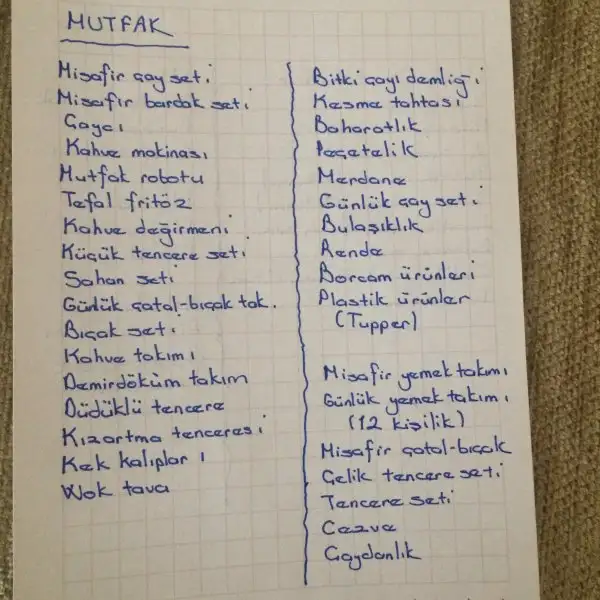 MUTFAK
Misafir çay seti
Misafir bardak seti
Çaycı
Kahve makinası
Mutfak robotu
Tefal fritöz
Kahve değirmeni
Küçük tencere seti
Sahan seti
Günlük çatal-bıçak tak.
Bıçak seti
Kahve takımı
Demirdöküm takım
Düdüklü tencere
Kızartma tenceresi
Kek kalıpları
Wok tava
Bitki çayı demliği
Kesme tahtası
Baharatlık
Peçetelik
Merdane
Günlük çay seti
Bulaşıklık
Rende
Borcam ürünleri
Plastik ürünler
(Tupper)
Misafir yemek takımı
Günlük yemek takımı
(12 kişilik)
Misafir çatal-bıçak
Çelik tencere seti
Tencere seti
Cezve
Çaydanlık